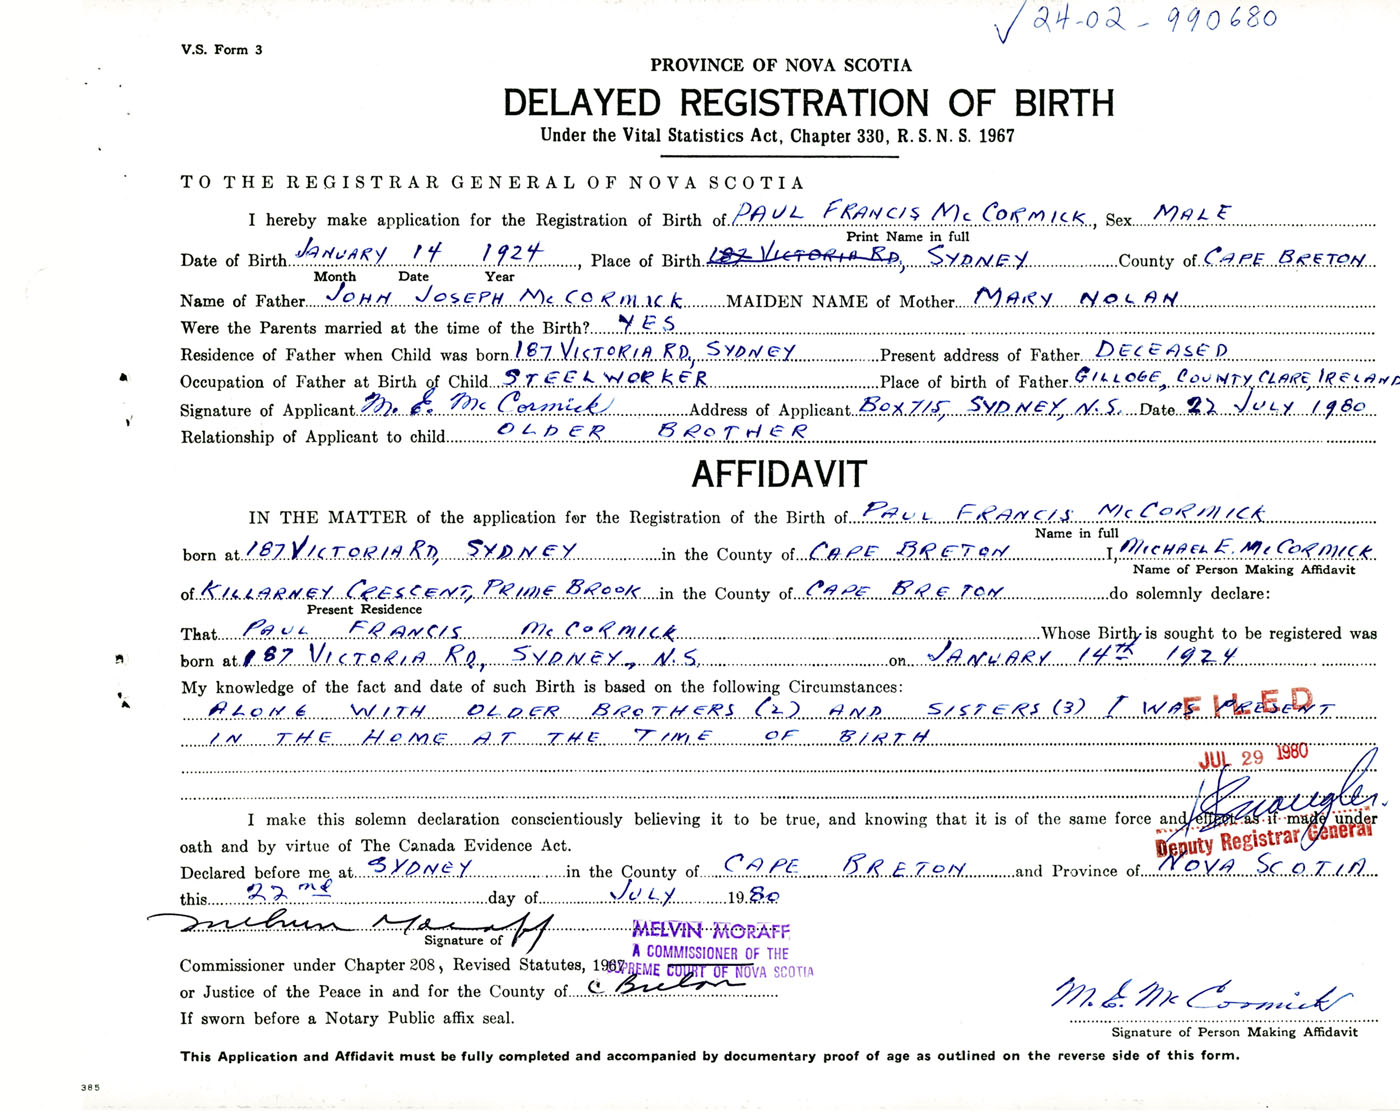 √ 24-02-990680
V.S. Form 3
PROVINCE OF NOVA SCOTIA
DELAYED REGISTRATION OF BIRTH
Under the Vital Statistics Act, Chapter 330, R.S.N.S. 1967
TO THE REGISTRAR GENERAL OF NOVA SCOTIA
I hereby make application for the Registration of Birth of PAUL FRANCIS McCORMICK, Sex MALE
Print Name in full
Date of Birth JANUARY 14 1924, Place of Birth 187 VICTORIA RD, SYDNEY County of CAPE BRETON
Month Date Year
Name of Father JOHN JOSEPH McCORMICK MAIDEN NAME of Mother MARY NOLAN
Were the Parents married at the time of the Birth? YES
Residence of Father when Child was born 187 VICTORIA RD, SYDNEY Present address of Father DECEASED
Occupation of Father at Birth of Child STEELWORKER Place of birth of Father GILLOGE, COUNTY CLARE, IRELAND
Signature of Applicant M. E. McCormick Address of Applicant BOX 715, SYDNEY, N.S. Date 22 JULY 1980
Relationship of Applicant to child OLDER BROTHER
AFFIDAVIT
IN THE MATTER of the application for the Registration of the Birth of PAUL FRANCIS McCORMICK
Name in full
born at 187 VICTORIA RD, SYDNEY in the County of CAPE BRETON I, MICHAEL E. McCORMICK
Name of Person Making Affidavit
of KILLARNEY CRESCENT, PRIME BROOK in the County of CAPE BRETON do solemnly declare:
Present Residence
That PAUL FRANCIS McCORMICK Whose Birth is sought to be registered was
born at 187 VICTORIA RD, SYDNEY, N.S. on JANUARY 14th 1924
My knowledge of the fact and date of such Birth is based on the following Circumstances:
ALONG WITH OLDER BROTHERS (2) AND SISTERS (3) I WAS PRESENT
FILED
IN THE HOME AT THE TIME OF BIRTH
JUL 29 1980
I make this solemn declaration conscientiously believing it to be true, and knowing that it is of the same force and effect as if made under
Deputy Registrar General
oath and by virtue of The Canada Evidence Act.
Declared before me at SYDNEY in the County of CAPE BRETON and Province of NOVA SCOTIA
this 22nd day of JULY 1980
Melvin Moraff
MELVIN MORAFF
Signature of
A COMMISSIONER OF THE
Commissioner under Chapter 208, Revised Statutes, 1967
SUPREME COURT OF NOVA SCOTIA
or Justice of the Peace in and for the County of C Breton
M. E. McCormick
If sworn before a Notary Public affix seal.
Signature of Person Making Affidavit
This Application and Affidavit must be fully completed and accompanied by documentary proof of age as outlined on the reverse side of this form.
385